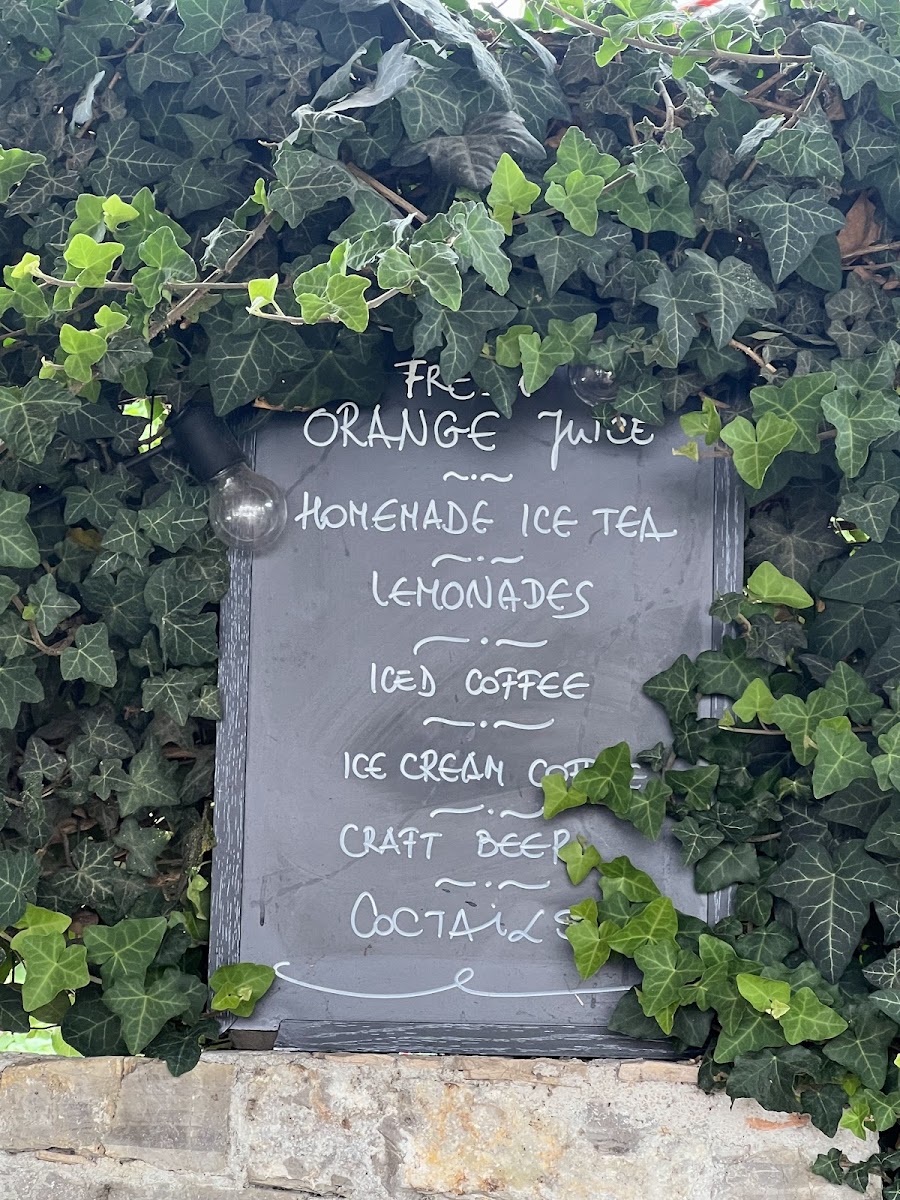 FRESH
ORANGE JUICE
HOMEMADE ICE TEA
LEMONADES
ICED COFFEE
ICE CREAM COFFEE
CRAFT BEER
COCTAILS